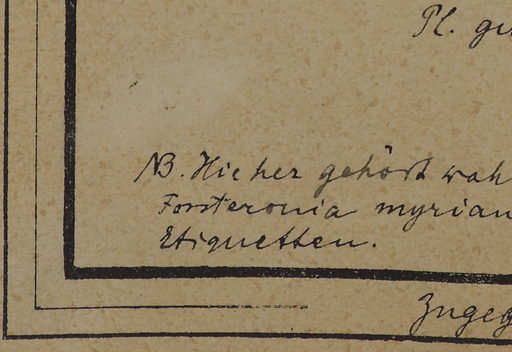 Pl. gu
NB. Hieher gehört wah
Forsteronia myrian
Etiquetten.
Zugeg